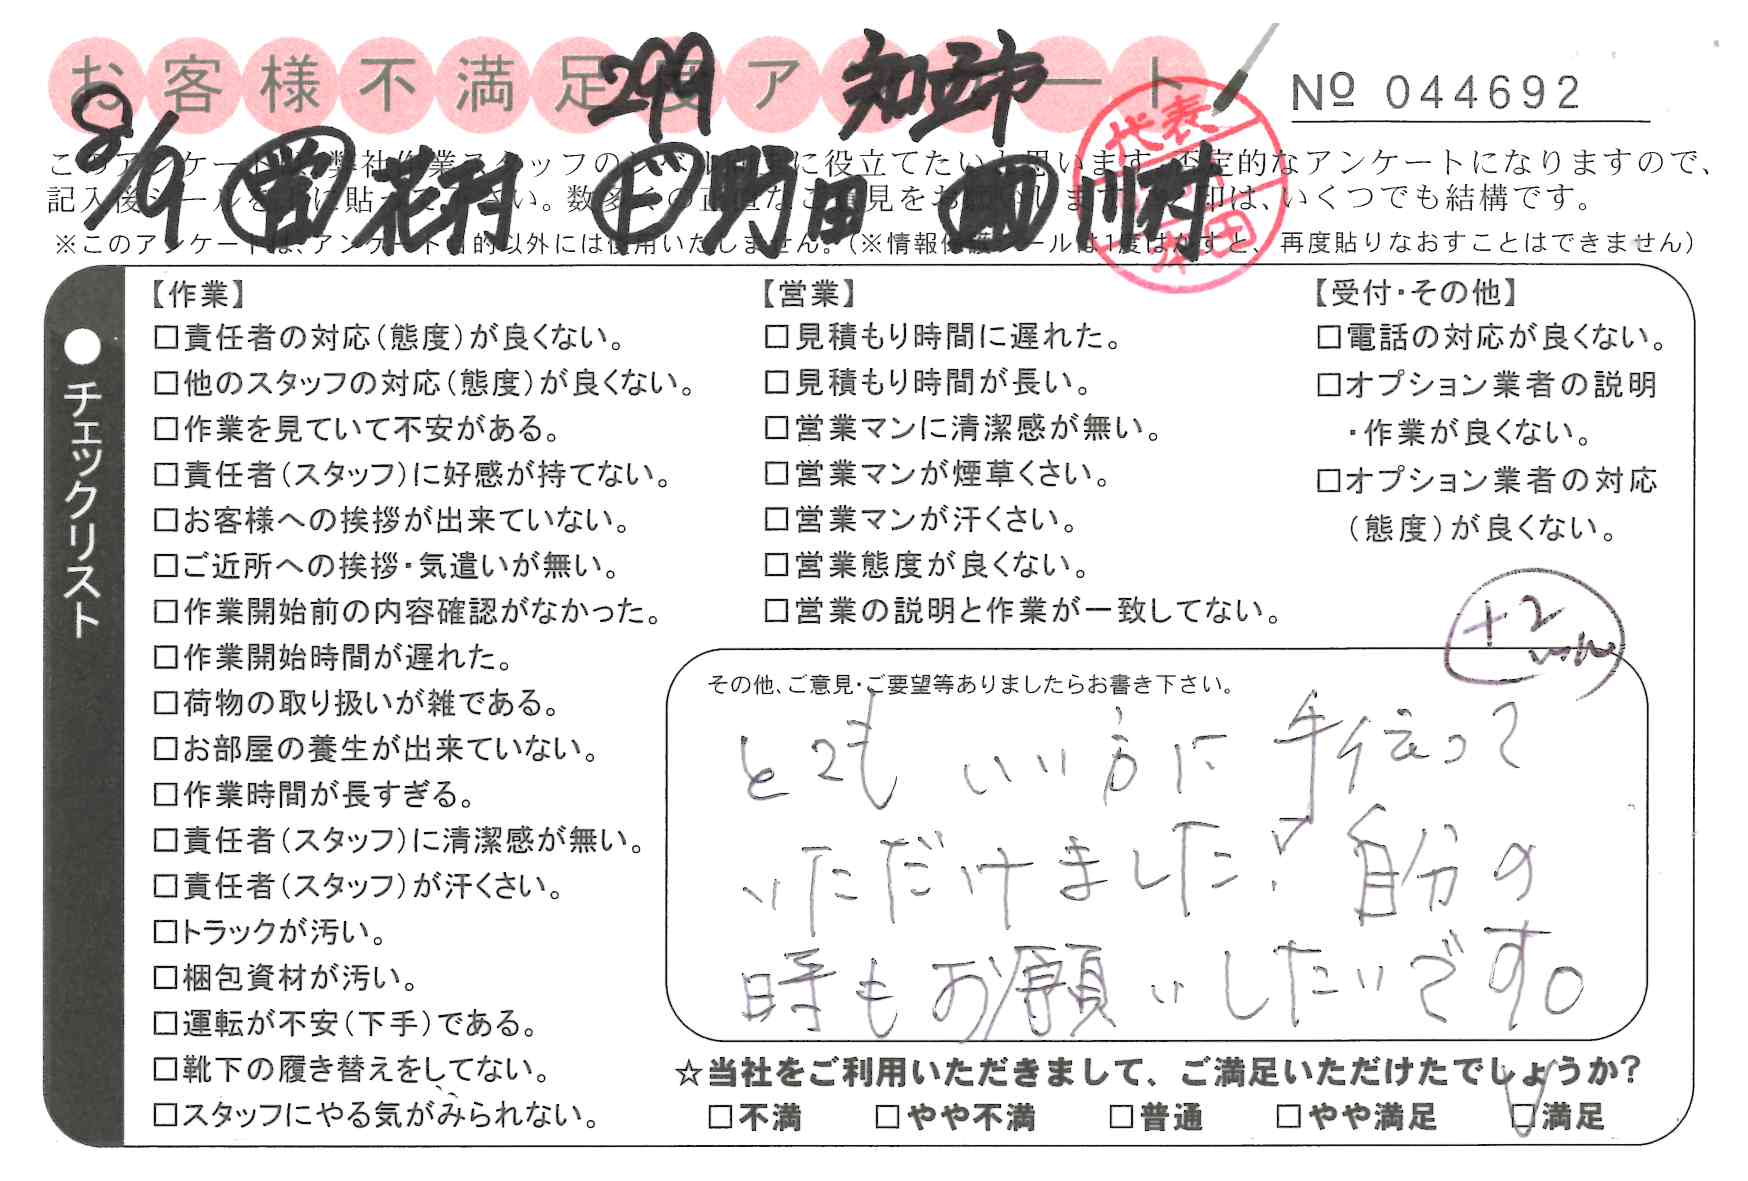 お客様不満足度アンケート
№ 044692
299 知立市
8/9 営 花村 ド 野田 川村
代表
このアンケートは、弊社作業スタッフのレベル向上に役立てたいと思います。否定的なアンケートになりますので、
記入後シールを上に貼って下さい。数多くの正直なご意見をお願いします。✓印は、いくつでも結構です。
※このアンケートは、アンケート目的以外には使用いたしません。(※情報保護シールは1度はがすと、再度貼りなおすことはできません)
●チェックリスト
【作業】
□責任者の対応(態度)が良くない。
□他のスタッフの対応(態度)が良くない。
□作業を見ていて不安がある。
□責任者(スタッフ)に好感が持てない。
□お客様への挨拶が出来ていない。
□ご近所への挨拶・気遣いが無い。
□作業開始前の内容確認がなかった。
□作業開始時間が遅れた。
□荷物の取り扱いが雑である。
□お部屋の養生が出来ていない。
□作業時間が長すぎる。
□責任者(スタッフ)に清潔感が無い。
□責任者(スタッフ)が汗くさい。
□トラックが汚い。
□梱包資材が汚い。
□運転が不安(下手)である。
□靴下の履き替えをしてない。
□スタッフにやる気がみられない。
【営業】
□見積もり時間に遅れた。
□見積もり時間が長い。
□営業マンに清潔感が無い。
□営業マンが煙草くさい。
□営業マンが汗くさい。
□営業態度が良くない。
□営業の説明と作業が一致してない。
【受付・その他】
□電話の対応が良くない。
□オプション業者の説明
・作業が良くない。
□オプション業者の対応
(態度)が良くない。
+2
その他、ご意見・ご要望等ありましたらお書き下さい。
とてもいい方に手伝って
いただけました! 自分の
時もお願いしたいです。
☆当社をご利用いただきまして、ご満足いただけたでしょうか?
□不満 □やや不満 □普通 □やや満足 ☑満足